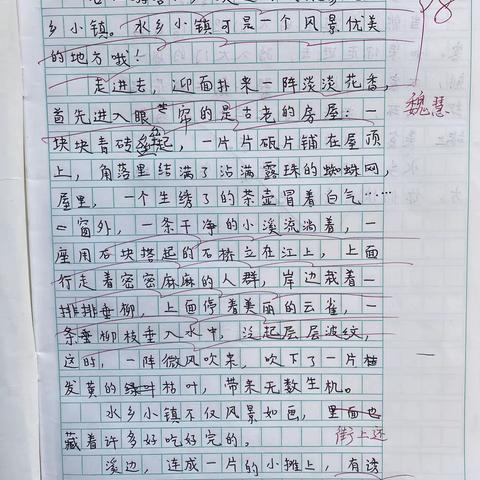 乡小镇。水乡小镇可是一个风景优美
98
的地方哦!
走进去,迎面扑来一阵淡淡花香,
首先进入眼帘的是古老的房屋:一
魏慧
块块青砖叠起,一片片砥片铺在屋顶
上,角落里结满了沾满露珠的蜘蛛网,
屋里,一个生锈了的茶壶冒着白气……
窗外,一条干净的小溪流淌着,一
座用石块搭起的石桥立在江上,上面
行走着密密麻麻的人群,岸边栽着一
排排垂柳,上面停着美丽的云雀,一
条垂柳枝垂入水中,泛起层层波纹,
这时,一阵微风吹来,吹下了一片
发黄的枯叶,带来无数生机。
水乡小镇不仅风景如画,里面也
藏着许多好吃好完的。
街上还
溪边,连成一片的小摊上,有该